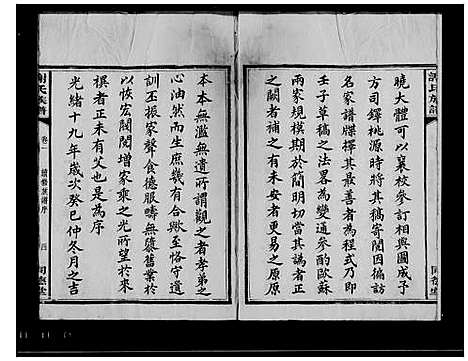 曉大體可以襄校參訂相與圖成予
方司鐸桃源時將其稿寄閱因備訪
名家譜牒擇其最善者為程式乃即
壬子草稿之法畧為變通參酌歐蘇
兩家規模期於簡明切當其譌者正
之闕者補之有未安者更易之原原
本本無濫無遺所謂觀之者孝弟之
心油然而生庶幾有合歟至恪守遺
訓丕振家聲食德服疇無隳舊業於
以恢宏閥閱增家乘之光所望於來
禩者正未有艾也是為序
光緒十九年歲次癸巳仲冬月之吉
謝氏族譜
卷一
續修族譜序
四